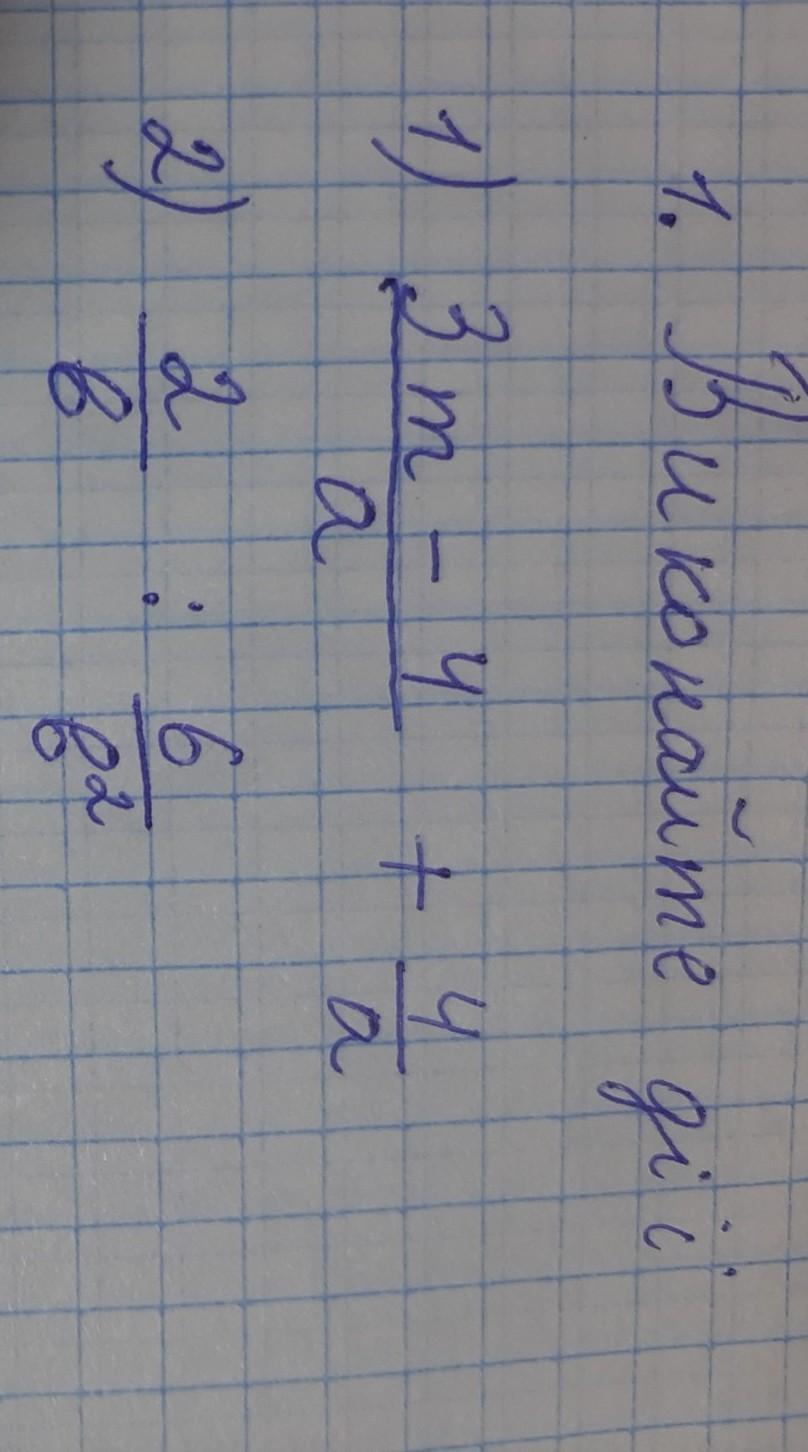 1. Виконайте дії
1) (3m - 4)/a + 4/a
2) 2/в : 6/в²